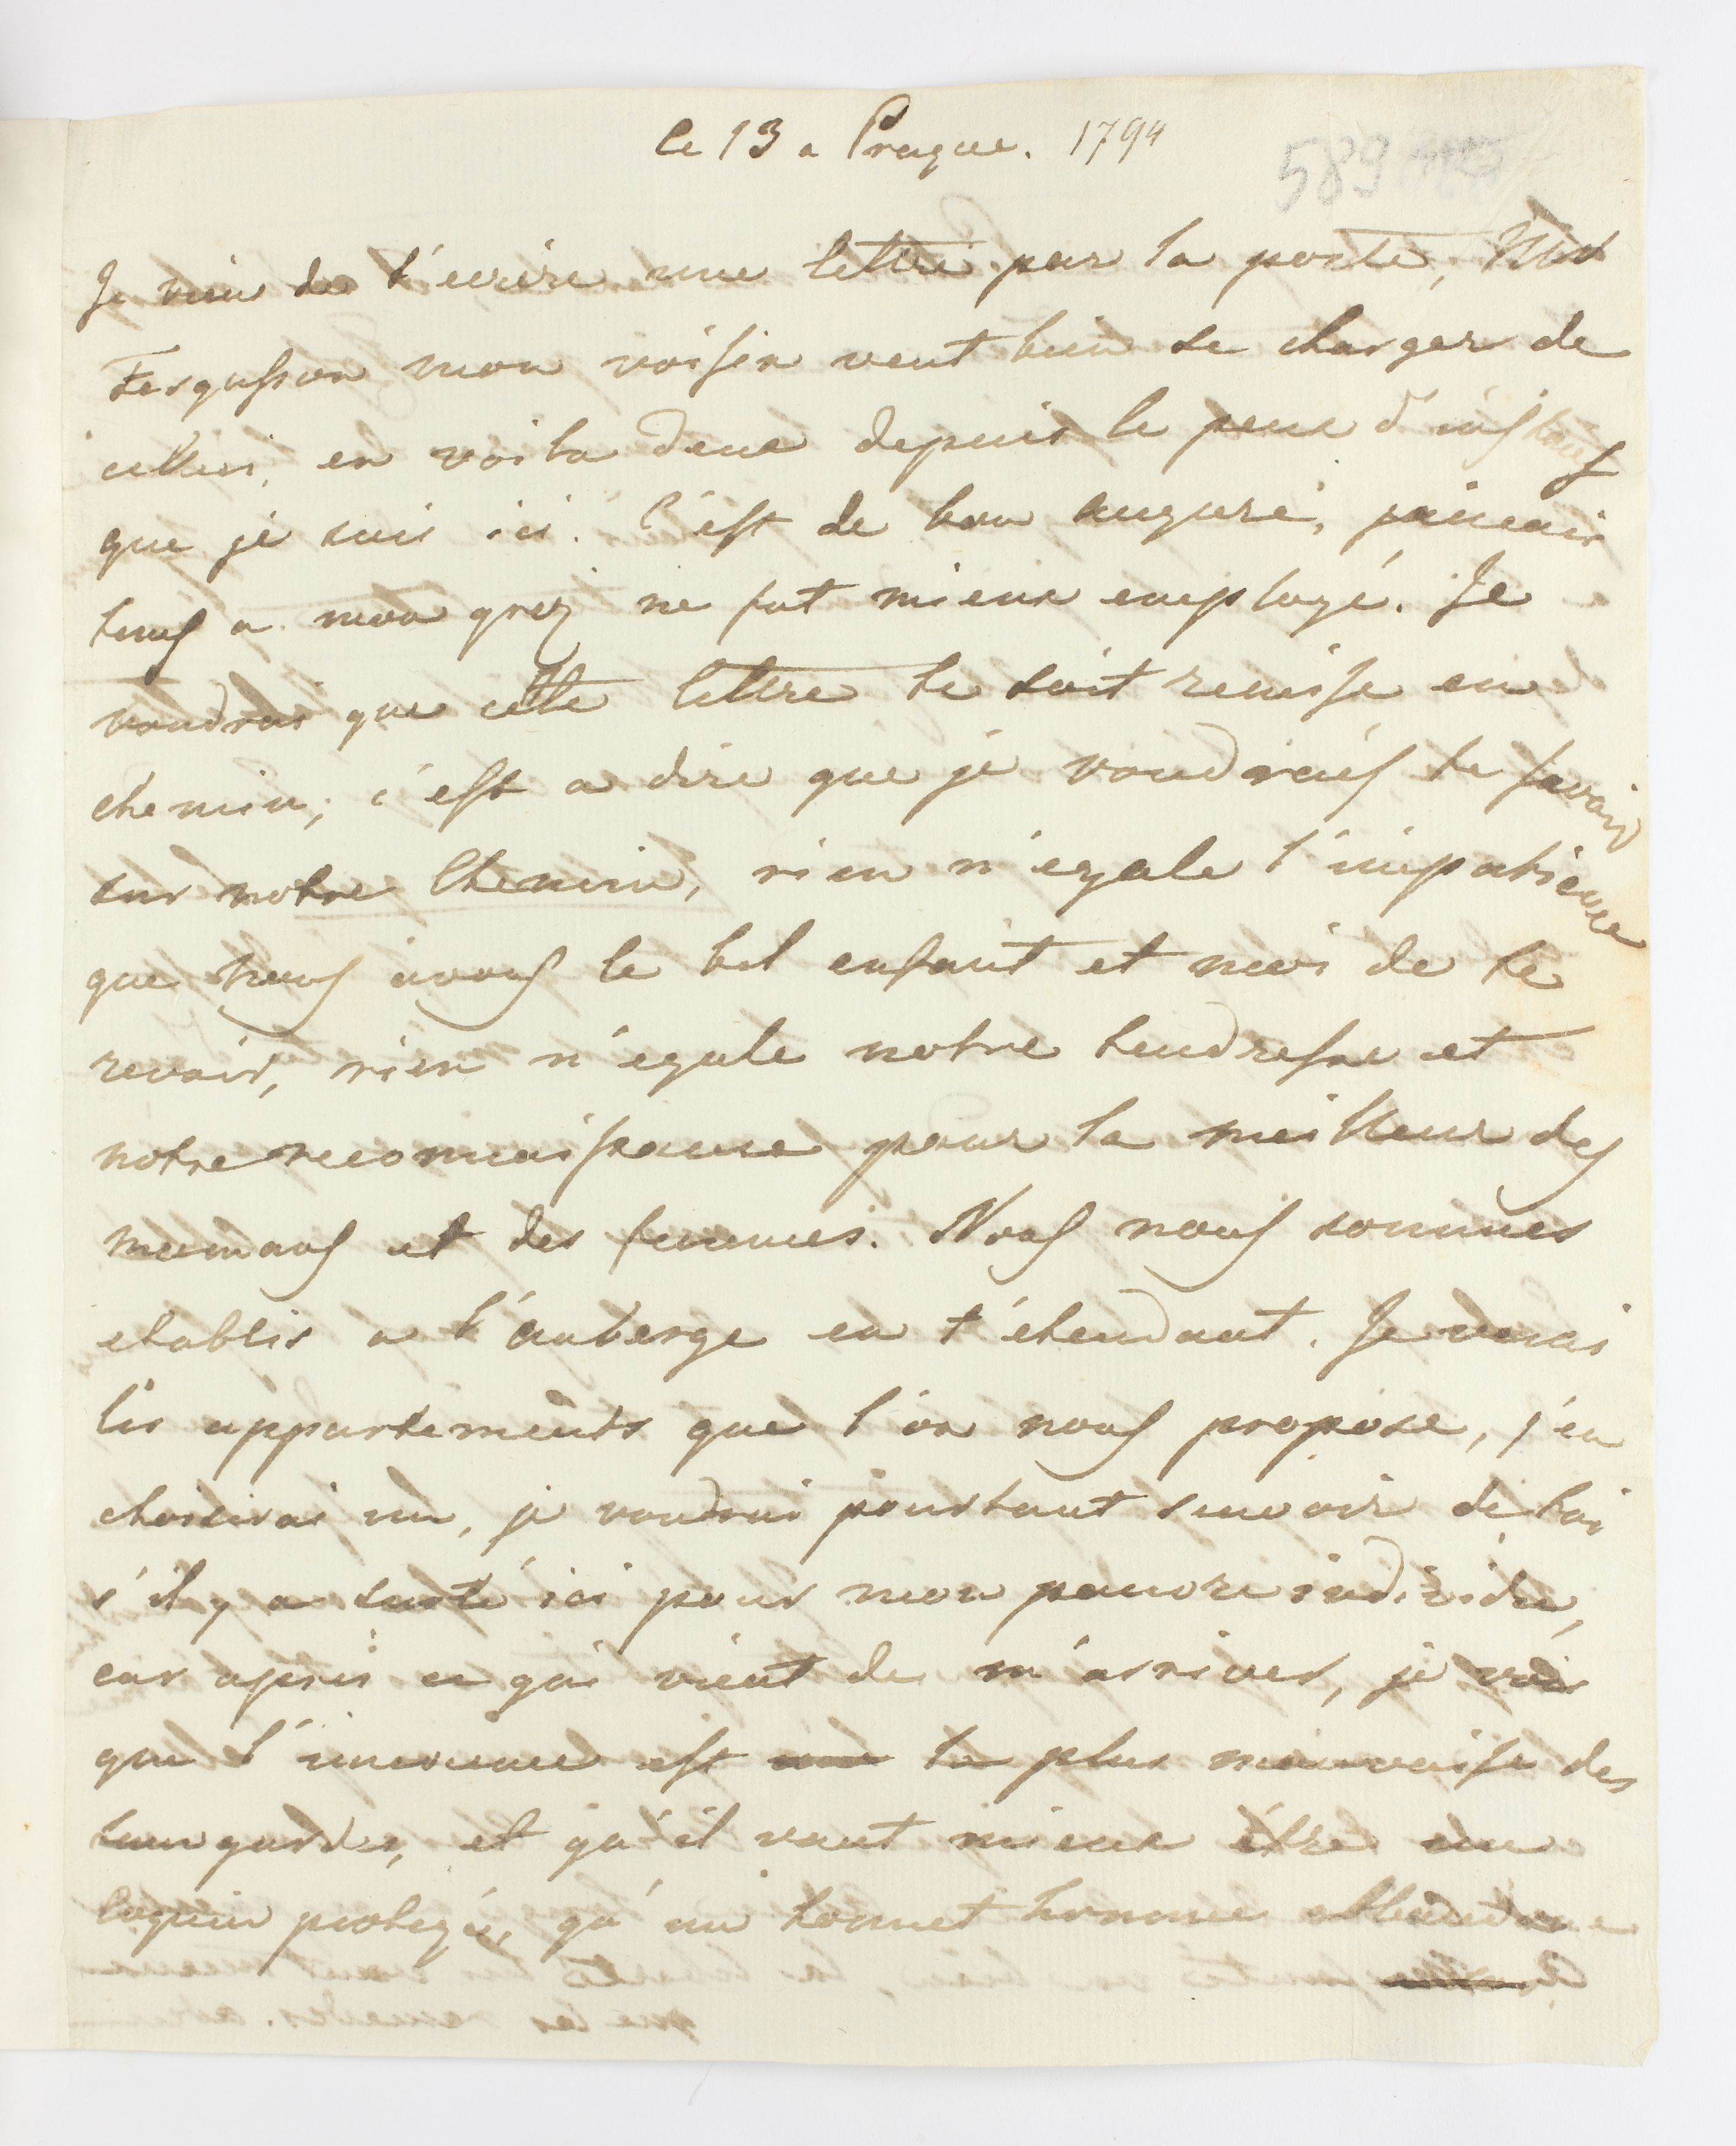 le 13 a Prague. 1794
589
Je vien de t'ecrire une lettre par la poste, Mr
Fergusson mon voisin veut bien se charger de
celleci, en voila deux depuis le peux d'instans
que je suis ici. C'est de bon augure, jamais
tems a mon grez ne fut mieux employé. Je
voudrai que cette lettre te soit remise en
chemin, c'est a dire que je voudrais te savoir
sur notre Chemin, rien n'egale l'impatience
que nous avons le bel enfant et moi de te
revoir, rien n'egale notre tendresse et
notre reconnaissance pour la meilleur des
mamans et des femmes. Nous nous sommes
etablis a l'auberge en t'etendant. Je verrai
les appartements que l'on nous propose, j'en
choisirai un, je voudrai pourtant savoir de toi
s'il y a sureté ici pour mon pauvre individu,
car après ce qui vient de m'arriver, je vois
que l'innocence est la plus mauvaise des
sauvgardes, et qu'il vaut mieux être un
coquin protegé, qu'un honnet homme